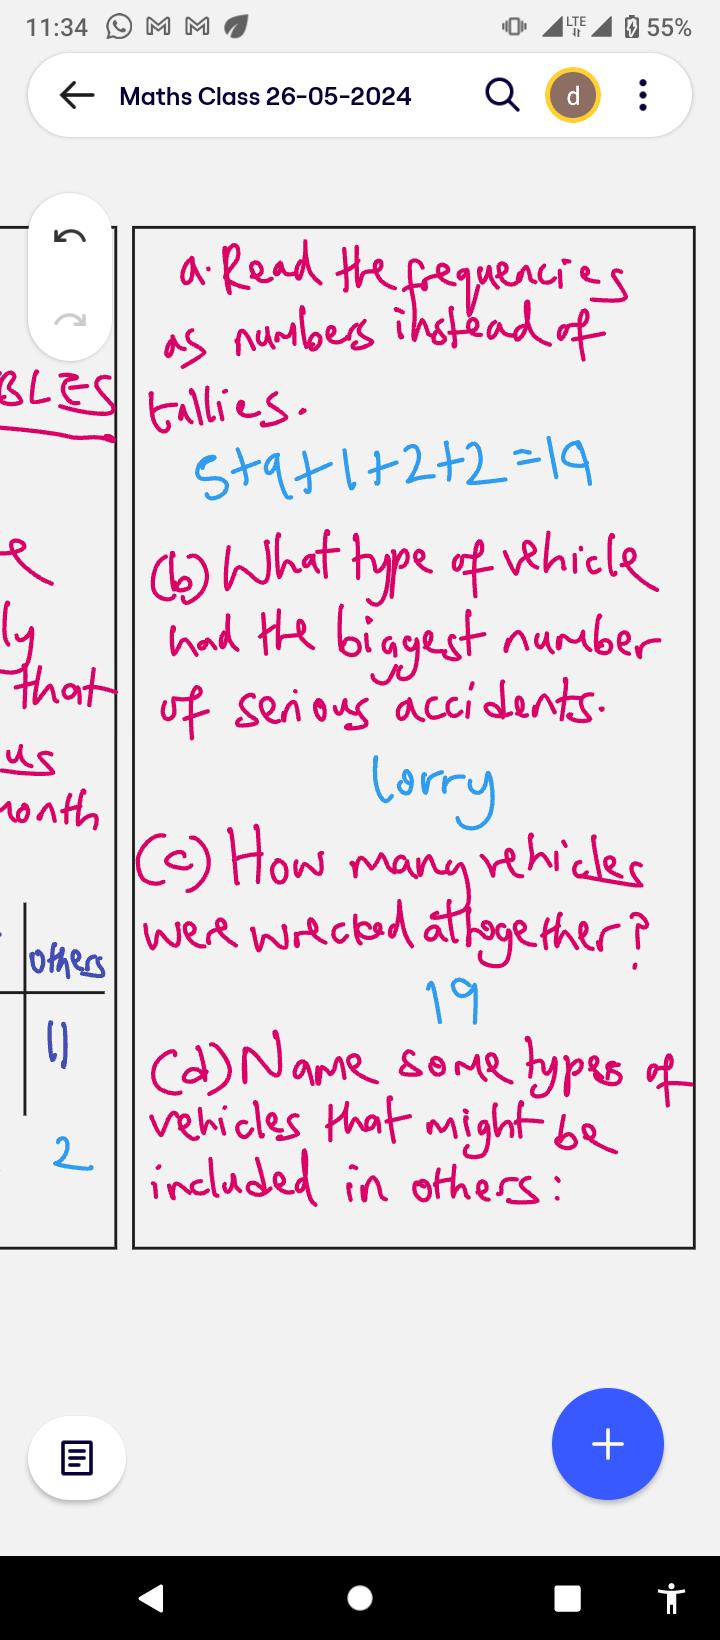 11:34
LTE
55%
Maths Class 26-05-2024
d
BLES
e
ly
that
us
month
others
11
2
a. Read the frequencies
as numbers instead of
tallies.
5+9+1+2+2=19
(b) What type of vehicle
had the biggest number
of serious accidents.
lorry
(c) How many vehicles
were wrecked althogether?
19
(d) Name some types of
vehicles that might be
included in others: